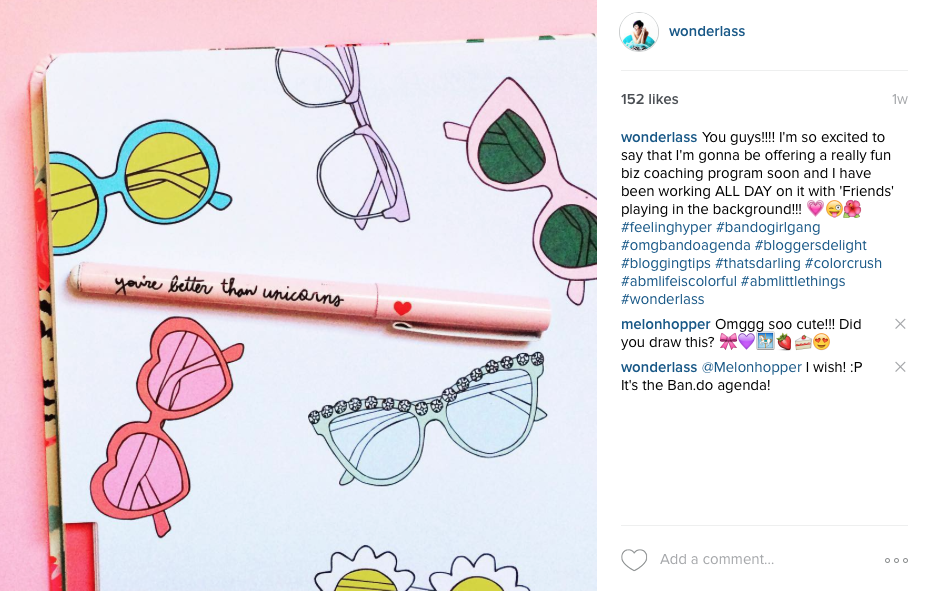 you're better than unicorns
wonderlass
152 likes 1w
wonderlass You guys!!!! I'm so excited to
say that I'm gonna be offering a really fun
biz coaching program soon and I have
been working ALL DAY on it with 'Friends'
playing in the background!!! 💗😜🌺
#feelinghyper #bandogirlgang
#omgbandoagenda #bloggersdelight
#bloggingtips #thatsdarling #colorcrush
#abmlifeiscolorful #abmlittlethings
#wonderlass
melonhopper Omggg soo cute!!! Did
you draw this? 🎀💜🎠🍓🍰😍
wonderlass @Melonhopper I wish! :P
It's the Ban.do agenda!
Add a comment...